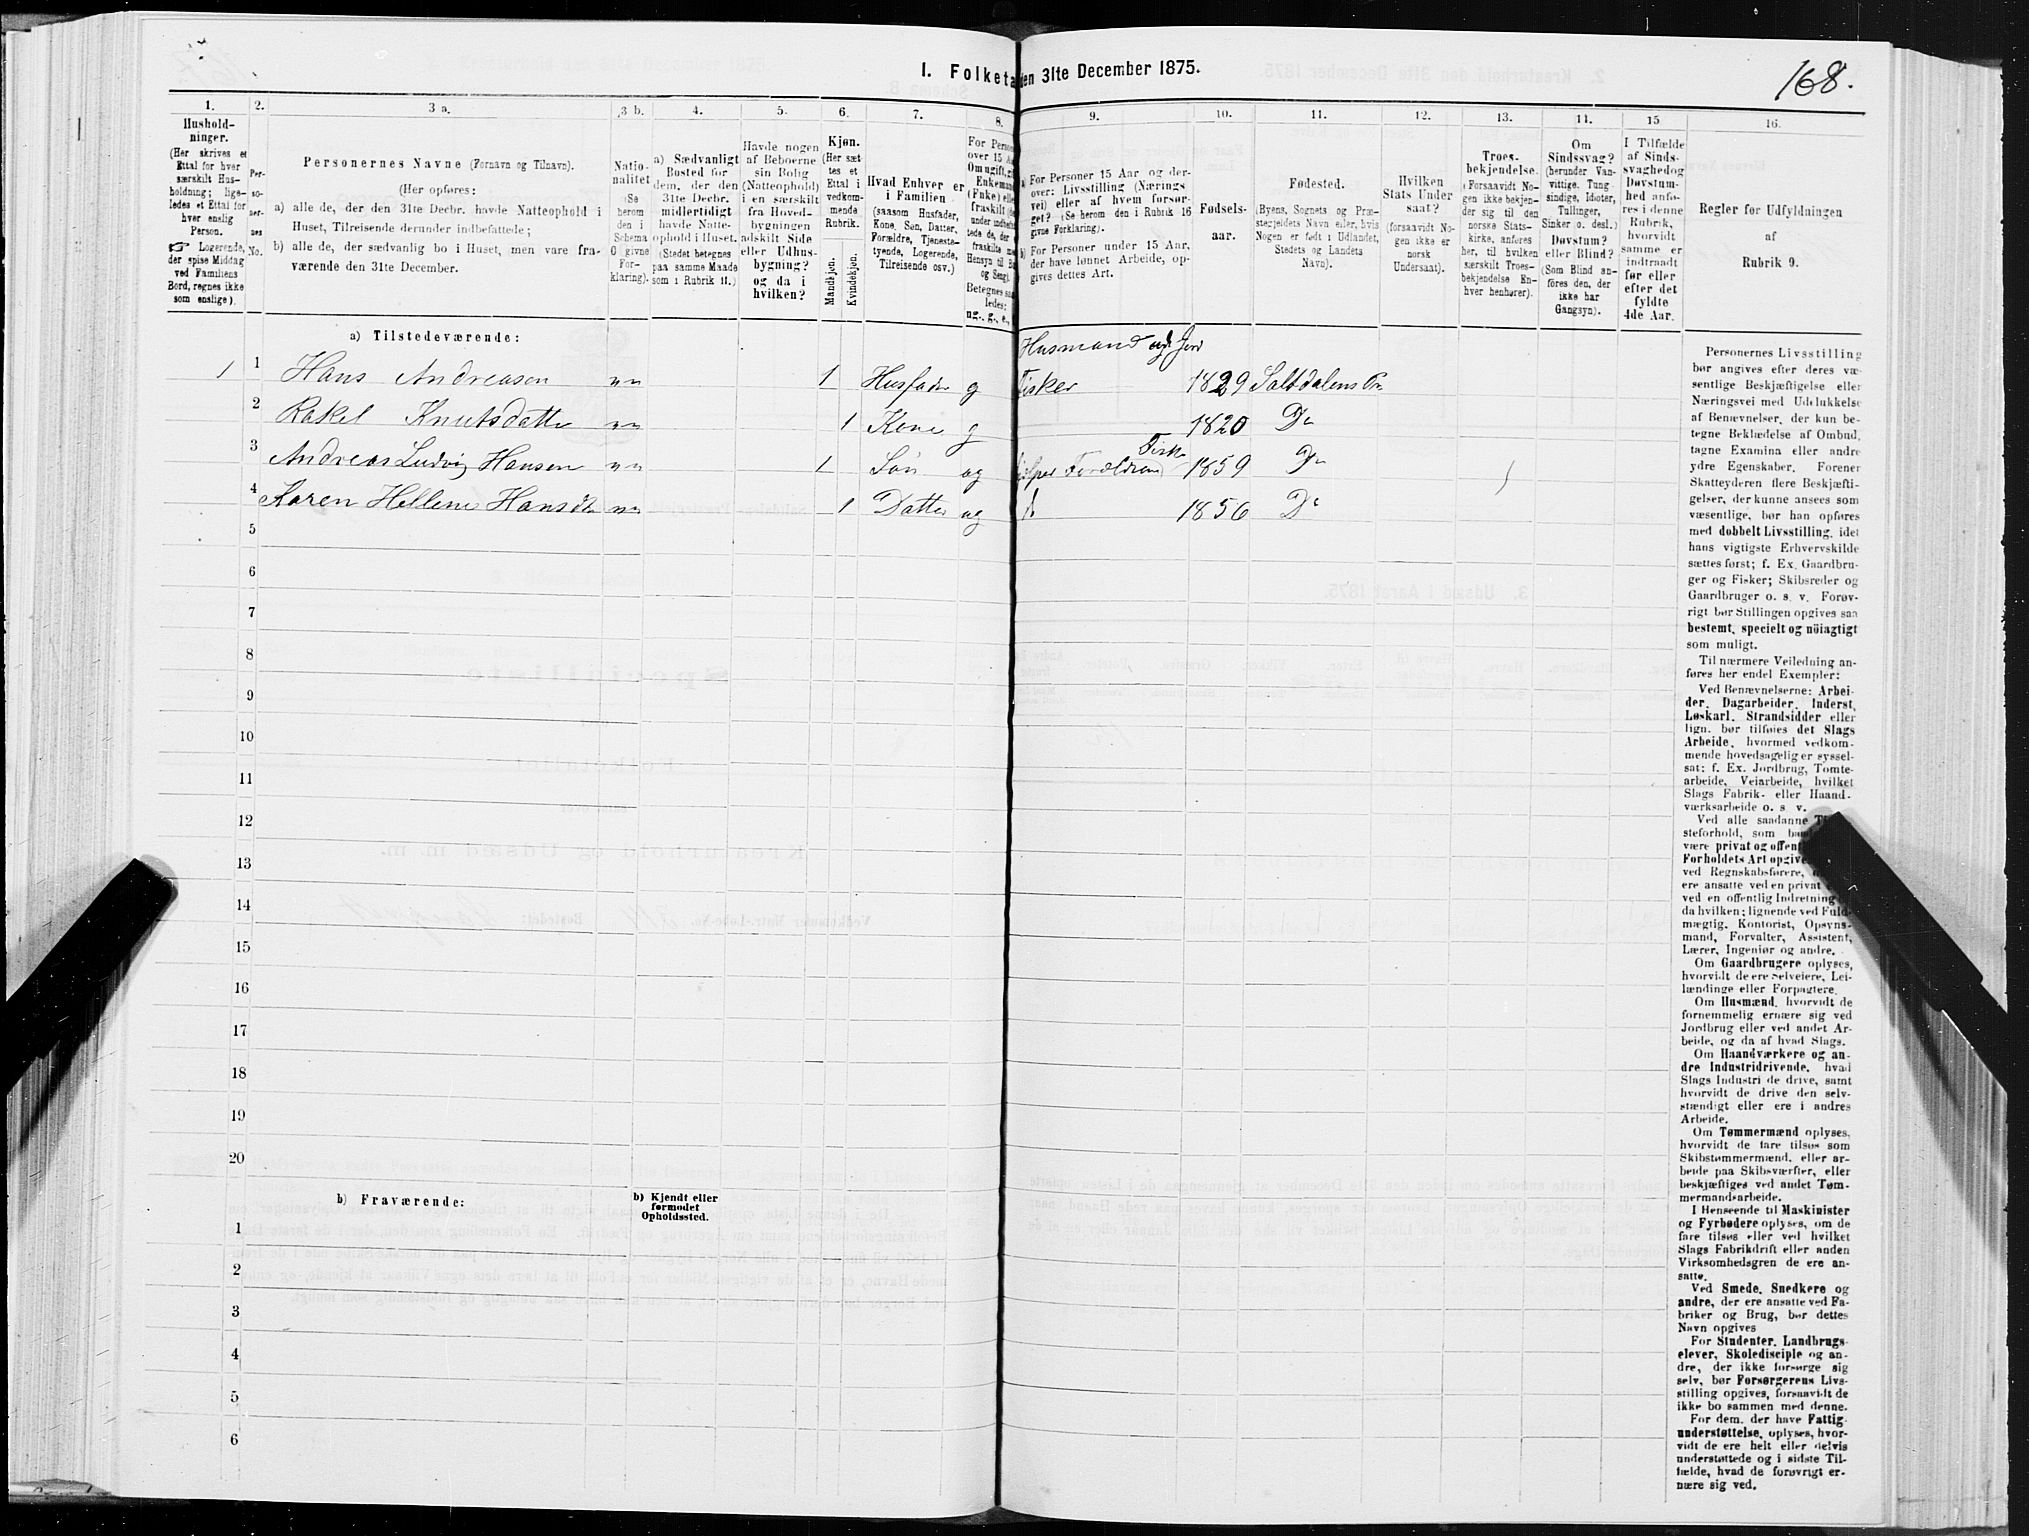 168.
I. Folketa
den 31te December 1875.
1.
2.
3 a.
3 b.
4.
5.
6.
7.
8.
9.
10.
11.
12.
13.
14.
15
16.
Hushold-
ninger.
(Her skrives et
Ettal for hver
særskilt Hus-
holdning; lige-
ledes et Ettal for
hver enslig
Person.
Logerende,
der spise Middag
ved Familiens
Bord, regnes ikke
som enslige).
Per-
so-
ner-
nes
No.
Personernes Navne (Fornavn og Tilnavn).
(Her opføres:
a) alle de, der den 31te Decbr. havde Natteophold i
Huset, Tilreisende derunder indbefattede;
b) alle de, der sædvanlig bo i Huset, men vare fra-
værende den 31te December.
Natio-
nalitet
(Se
herom
den i
Schema
O givne
For-
klaring).
a) Sædvanligt
Bosted for
dem, der den
31te Decbr.
midlertidigt
havde Natte-
ophold i Huset.
(Stedet betegnes
paa samme Maade
som i Rubrik 11.)
Havde nogen
af Beboerne
sin Bolig
(Natteophold)
i en særskilt
fra Hoved-
bygningen
adskilt Side
eller Udhus-
bygning?
og da i
hvilken?
Kjøn.
(Her sæt-
tes et
Ettal i
vedkom-
mende
Rubrik.
Mandkjøn.
Kvindekjøn.
Hvad Enhver er
i Familien
(saasom Husfader,
Kone, Søn, Datter,
Forældre, Tjeneste-
tyende, Logerende,
Tilreisende osv.)
For Person
over 15 Aa
Om ugift, gi
Enkeman
(Enke) elle
fraskilt (d
under indbefa
tede de, der e
fraskilte me
Hensyn til Bo
og Seng).
Betegnes saa
ledes:
ug., g., e.,
a) For Personer 15 Aar og der-
over: Livsstilling (Nærings
vei) eller af hvem forsør-
get? (Se herom den i Rubrik 16
givne Forklaring).
b) For Personer under 15 Aar,
der have lønnet Arbeide, op-
gives dettes Art.
Fødsels-
aar.
Fødested.
(Byens, Sognets og Præ-
stegjeldets Navn eller, hvis
Nogen er født i Udlandet,
Stedets og Landets
Navn).
Hvilken
Stats Under
saat?
(forsaavidt No-
gen ikke er
norsk
Undersaat).
Troes-
bekjendelse.
(Forsaavidt No-
gen ikke bekjen-
der sig til den
norske Stats-
kirke, anføres
her, til hvilken
særskilt Troes-
bekjendelse En-
hver henhører).
Om
Sindssvag?
(herunder Van-
vittige, Tung-
sindige, Idioter,
Tullinger,
Sinker o. desl.)
Døvstum?
eller Blind?
(Som Blind an-
føres den, der
ikke har
Gangsyn).
I Tilfælde
af Sinds-
svaghed og
Døvstum-
hed anfø-
res i denne
Rubrik,
hvorvidt
samme er
indtraadt
før eller
efter det
fyldte
4de Aar.
Regler for Udfyldningen
af
Rubrik 9.
a) Tilstedeværende:
Husmand
Jord
1 1 Hans Andreasen nn 1 Husfader g Fisker 1829 Saltdalens Pr
2 Rakel Knutsdatter nn 1 Kone g 1820 Do
Fiske
3 Andreas Ludvig Hansen nn 1 Søn ug Forældrene 1859 Do
4 Karen Hellene Hansdtr nn 1 Datter ug 1856 Do
5
6
7
8
9
10
11
12
13
14
15
16
17
18
19
20
b) Fraværende:
b) Kjendt eller
formodet
Opholdssted.
1
2
3
4
5
6
Personernes Livsstilling
bør angives efter deres væ-
sentlige Beskjæftigelse eller
Næringsvei med Udelukkelse
af Benævnelser, der kun be-
tegne Beklædelse af Ombud,
tagne Examina eller andre
ydre Egenskaber. Forener
Skatteyderen flere Beskjæfti-
gelser, der kunne ansees som
væsentlige, bør han opføres
med dobbelt Livsstilling, idet
hans vigtigste Erhvervskilde
sættes først; f. Ex. Gaardbru-
ger og Fisker; Skibsreder og
Gaardbruger o. s. v. Forøv-
rigt bør Stillingen opgives saa
bestemt, specielt og nöiagtigt
som muligt.
Til nærmere Veiledning an-
føres her endel Exempler:
Ved Benævnelserne: Arbei-
der, Dagarbeider, Inderst,
Løskarl, Strandsidder eller
lign. bør tilføies det Slags
Arbeide, hvormed vedkom-
mende hovedsagelig er syssel-
sat; f. Ex. Jordbrug, Tomte-
arbeide, Veiarbeide, hvilket
Slags Fabrik- eller Haand-
værksarbeide o. s. v.
Ved alle saadanne
steforhold, som
være privat og offent
Forholdets Art opgive
ved Regnskabsførere,
ere ansatte ved en privat
ved en offentlig Indretning
da hvilken; lignende ved Fuld-
mægtig, Kontorist, Opsyns-
mand, Forvalter, Assistent,
Lærer, Ingeniør og andre.
Om Gaardbrugere oplyses,
hvorvidt de ere Selveiere, Lei-
lændinge eller Forpagtere.
Om Husmænd, hvorvidt de
fornemmelig ernære sig ved
Jordbrug eller ved andet Ar-
beide, og da af hvad Slags.
Om Haandværkere og an-
dre Industridrivende, hvad
Slags Industri de drive, samt
hvorvidt de drive den selv-
stændigt eller ere i andres
Arbeide.
Om Tømmermænd oplyses,
hvorvidt de fare tilsøs som
Skibstømmermænd, eller ar-
beide paa Skibsværfter, eller
beskjæftiges ved andet Tøm-
mermandsarbeide.
I Henseende til Maskinister
og Fyrbødere oplyses, om de
fare tilsøs eller ved hvilket
Slags Fabrikdrift eller anden
Virksomhedsgren de ere an-
satte.
Ved Smede, Snedkere og
andre, der ere ansatte ved Fa-
briker og Brug, bør dettes
Navn opgives
For Studenter, Landbrugs-
elever, Skoledisciple og an-
dre, der ikke forsørge sig
selv, bør Forsørgerens Livs-
stilling opgives, forsaavidt de
ikke bo sammen med denne.
For dem, der have Fattig-
understøttelse, oplyses, hvor-
vidt de ere helt eller delvis
understøttede og i sidste Til-
fælde, hvad de forøvrigt er-
nære sig ved.